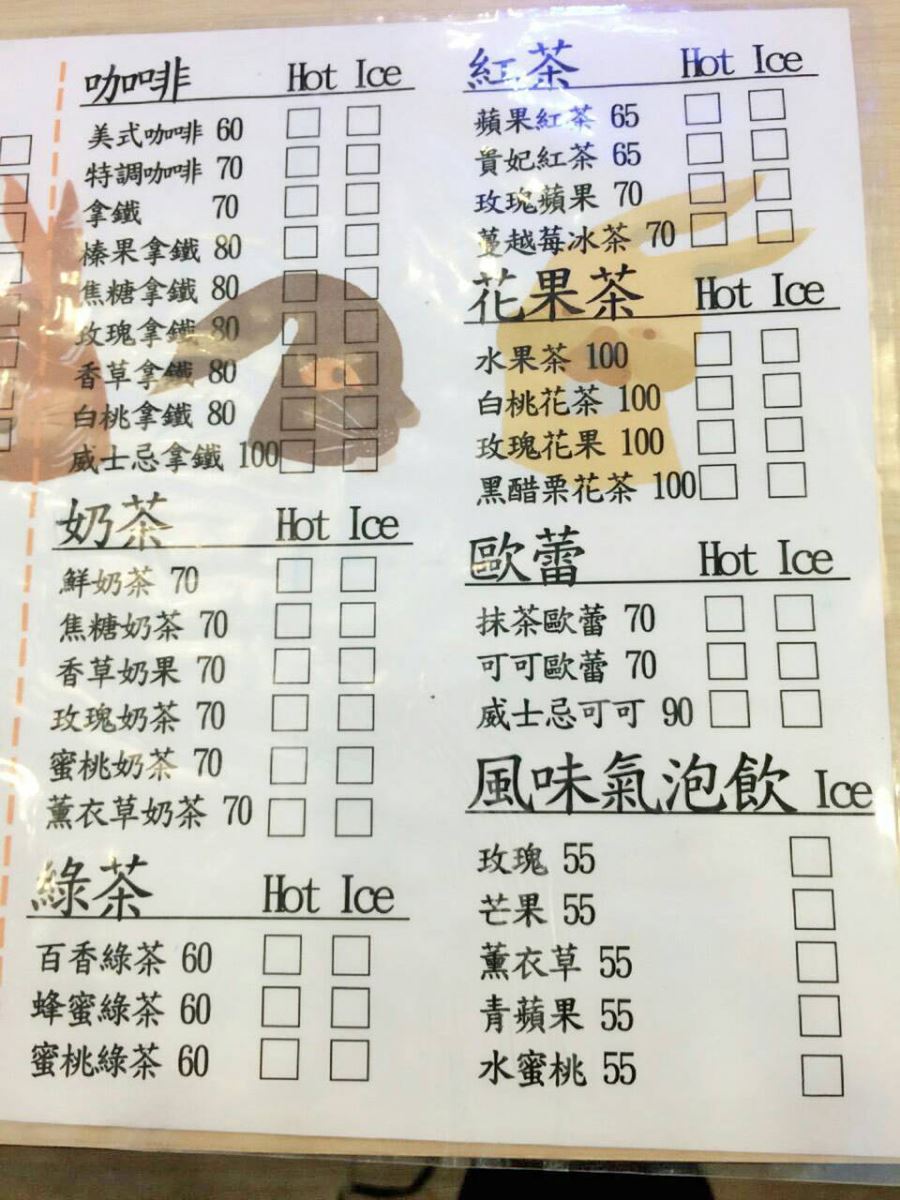 咖啡 Hot Ice
美式咖啡 60
特調咖啡 70
拿鐵 70
榛果拿鐵 80
焦糖拿鐵 80
玫瑰拿鐵 80
香草拿鐵 80
白桃拿鐵 80
威士忌拿鐵 100
奶茶 Hot Ice
鮮奶茶 70
焦糖奶茶 70
香草奶果 70
玫瑰奶茶 70
蜜桃奶茶 70
薰衣草奶茶 70
綠茶 Hot Ice
百香綠茶 60
蜂蜜綠茶 60
蜜桃綠茶 60
紅茶 Hot Ice
蘋果紅茶 65
貴妃紅茶 65
玫瑰蘋果 70
蔓越莓冰茶 70
花果茶 Hot Ice
水果茶 100
白桃花茶 100
玫瑰花果 100
黑醋栗花茶 100
歐蕾 Hot Ice
抹茶歐蕾 70
可可歐蕾 70
威士忌可可 90
風味氣泡飲 Ice
玫瑰 55
芒果 55
薰衣草 55
青蘋果 55
水蜜桃 55